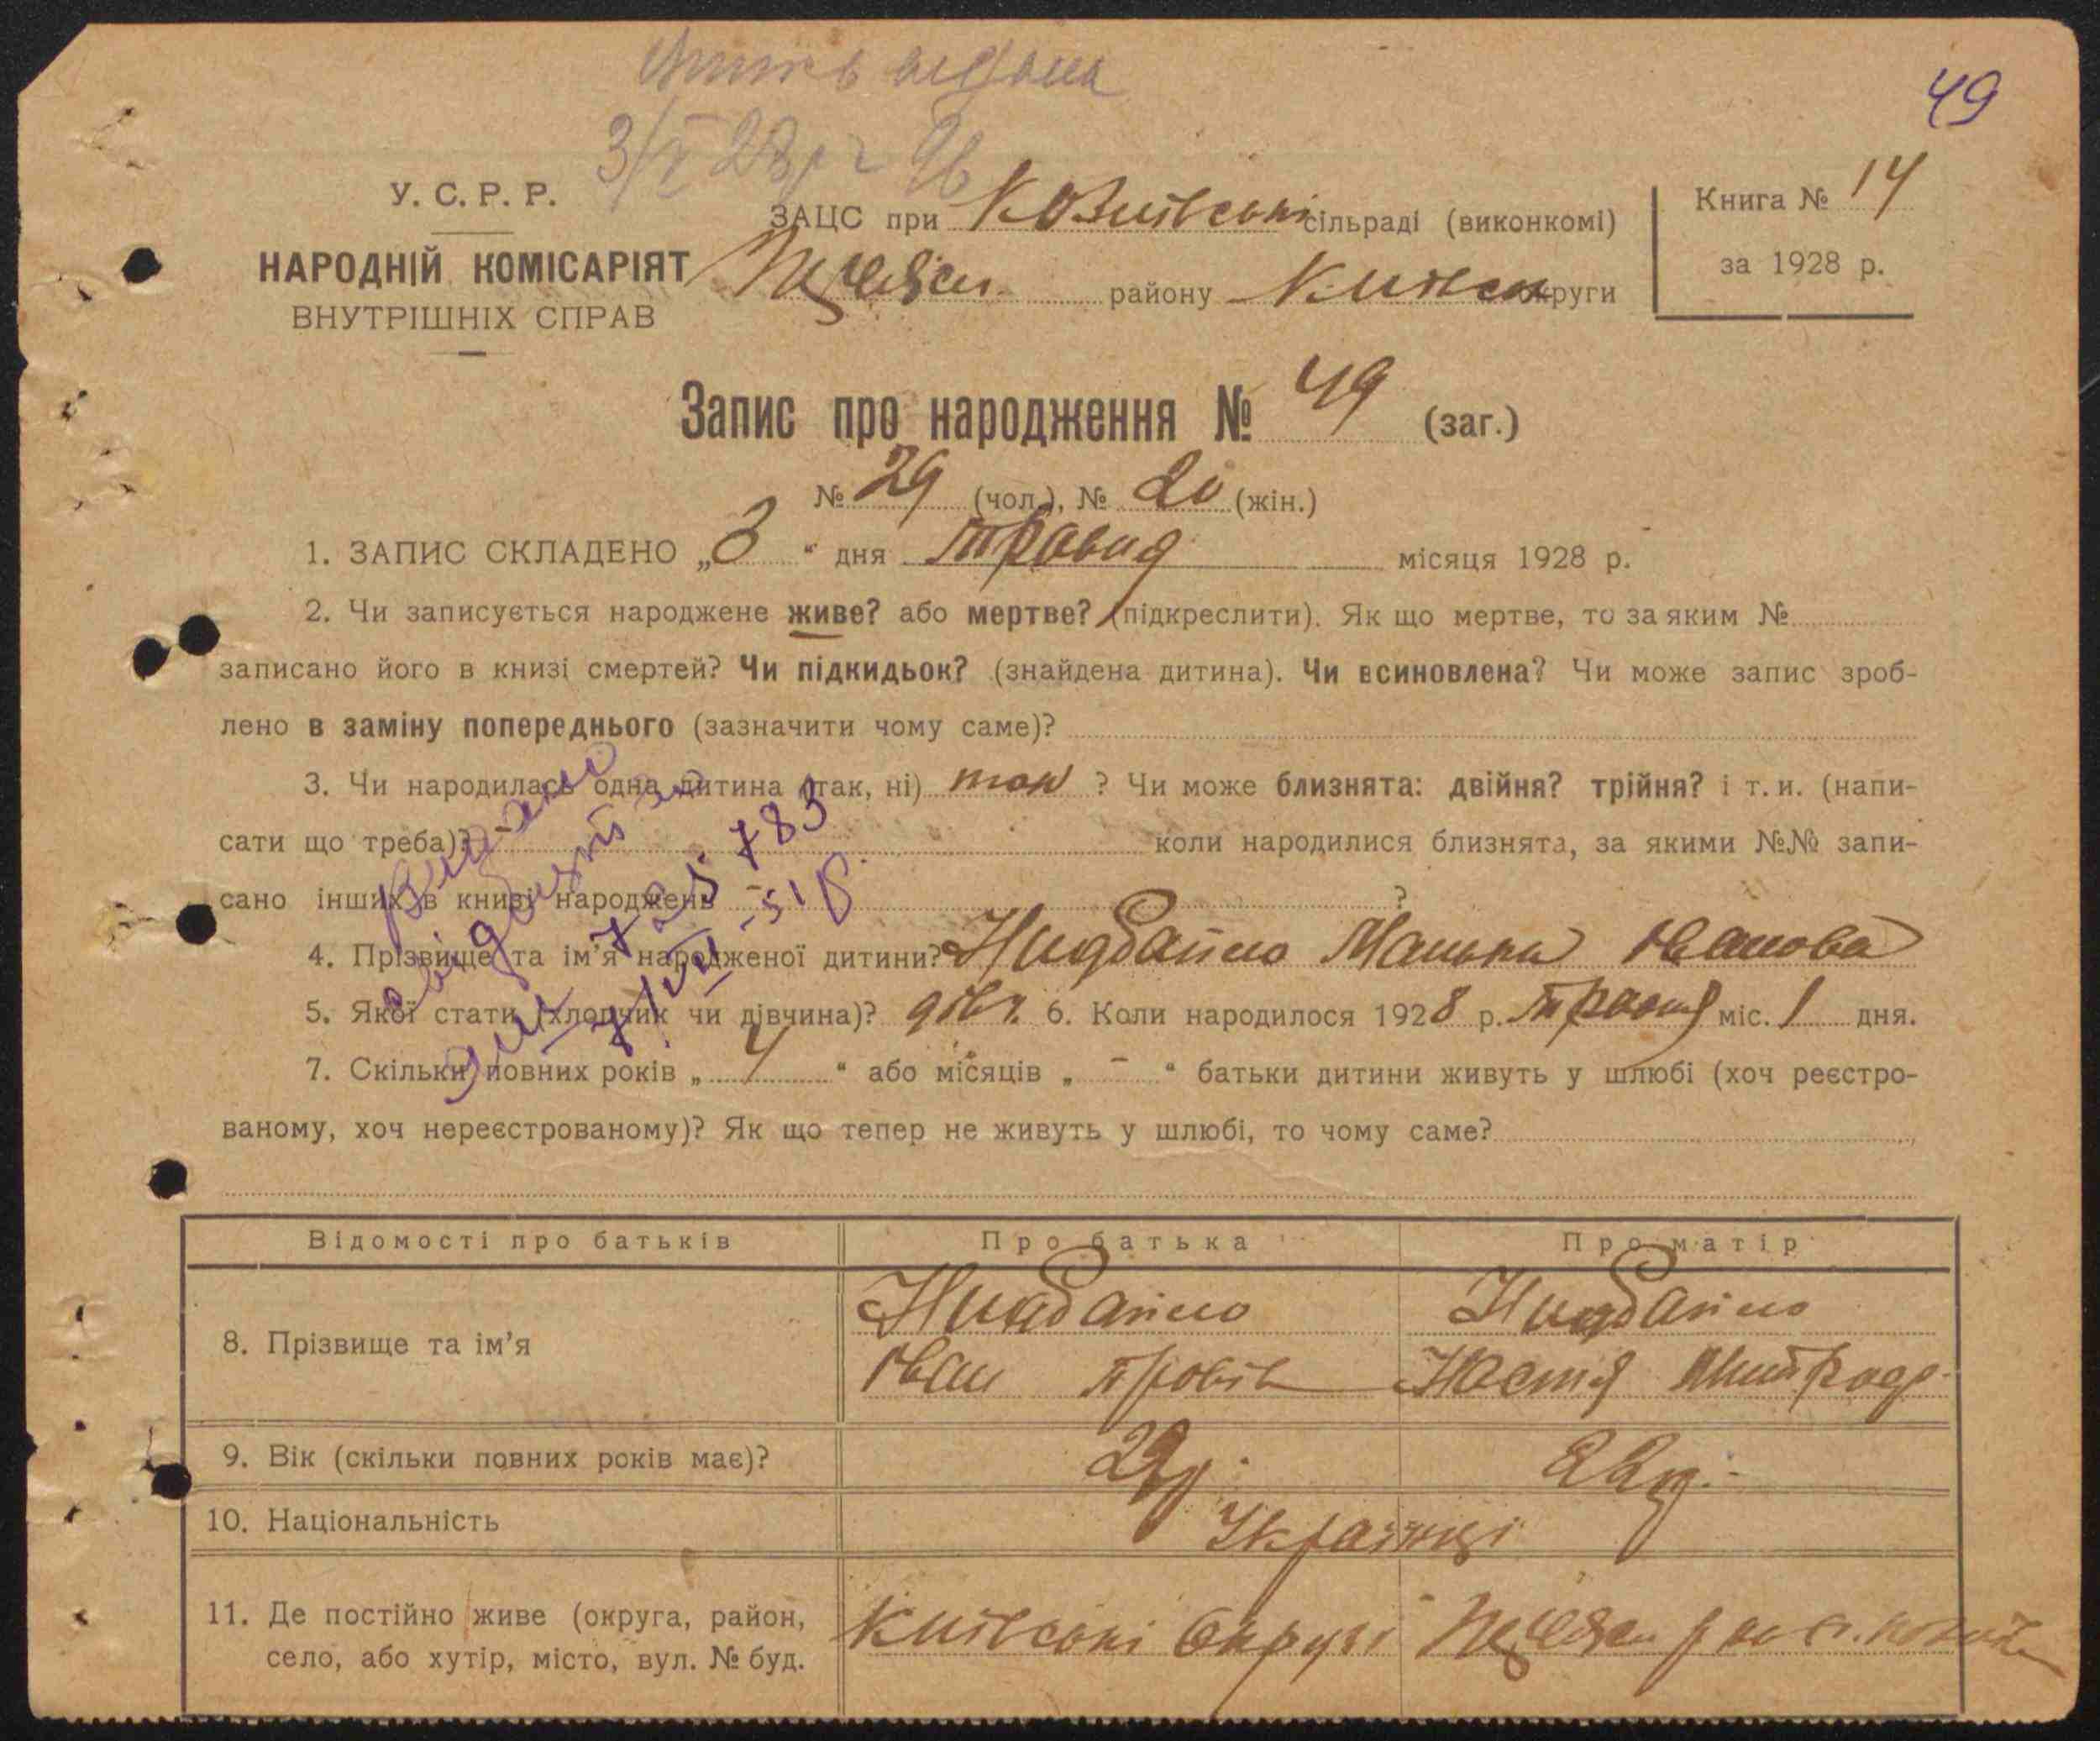 49
У. С. Р. Р.
НАРОДНІЙ КОМІСАРІЯТ
ВНУТРІШНІХ СПРАВ
3/V 28 р
ЗАЦС при сільраді (виконкомі)
району округи
Книга № 14
за 1928 р.
Запис про народження № 49 (заг.)
№ 29 (чол.), № 20 (жін.)
1. ЗАПИС СКЛАДЕНО „3“ дня травня місяця 1928 р.
2. Чи записується народжене живе? або мертве? (підкреслити). Як що мертве, то за яким №
записано його в книзі смертей? Чи підкидьок? (знайдена дитина). Чи всиновлена? Чи може запис зроб-
лено в заміну попереднього (зазначити чому саме)?
3. Чи народилась одна дитина (так, ні) так ? Чи може близнята: двійня? трійня? і т. и. (напи-
сати що треба)? коли народилися близнята, за якими №№ запи-
сано інших в книзі народжень - ?
4. Прізвище та ім’я народженої дитини? Нидбайло Манька Іванова
5. Якої стати (хлопчик чи дівчина)? дівч. 6. Коли народилося 1928 р. травня міс. 1 дня.
7. Скільки повних років „ 4 “ або місяців „ - “ батьки дитини живуть у шлюбі (хоч реєстро-
ваному, хоч нереєстрованому)? Як що тепер не живуть у шлюбі, то чому саме?
Видано
свідоцтво
783
Відомості про батьків Про батька Про матір
8. Прізвище та ім’я Нидбайло Нидбайло
Іван Настя
9. Вік (скільки повних років має)? 29 р. 22 р.
10. Національність Українці
11. Де постійно живе (округа, район, Київські округі
село, або хутір, місто, вул. № буд.